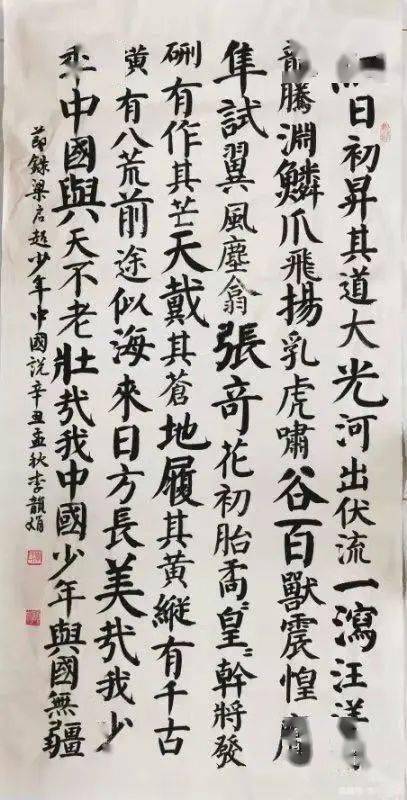 日初昇其道大光河出伏流一瀉汪洋
龍騰淵鱗爪飛揚乳虎嘯谷百獸震惶
隼試翼風塵翕張竒花初胎矞〻皇〻幹將發
硎有作其芒天戴其蒼地履其黄縱有千古
有八荒前途似海來日方長美哉我少
中國與天不老壯哉我中國少年與國無疆
節録梁启超少年中國説辛丑孟秋李韻娟